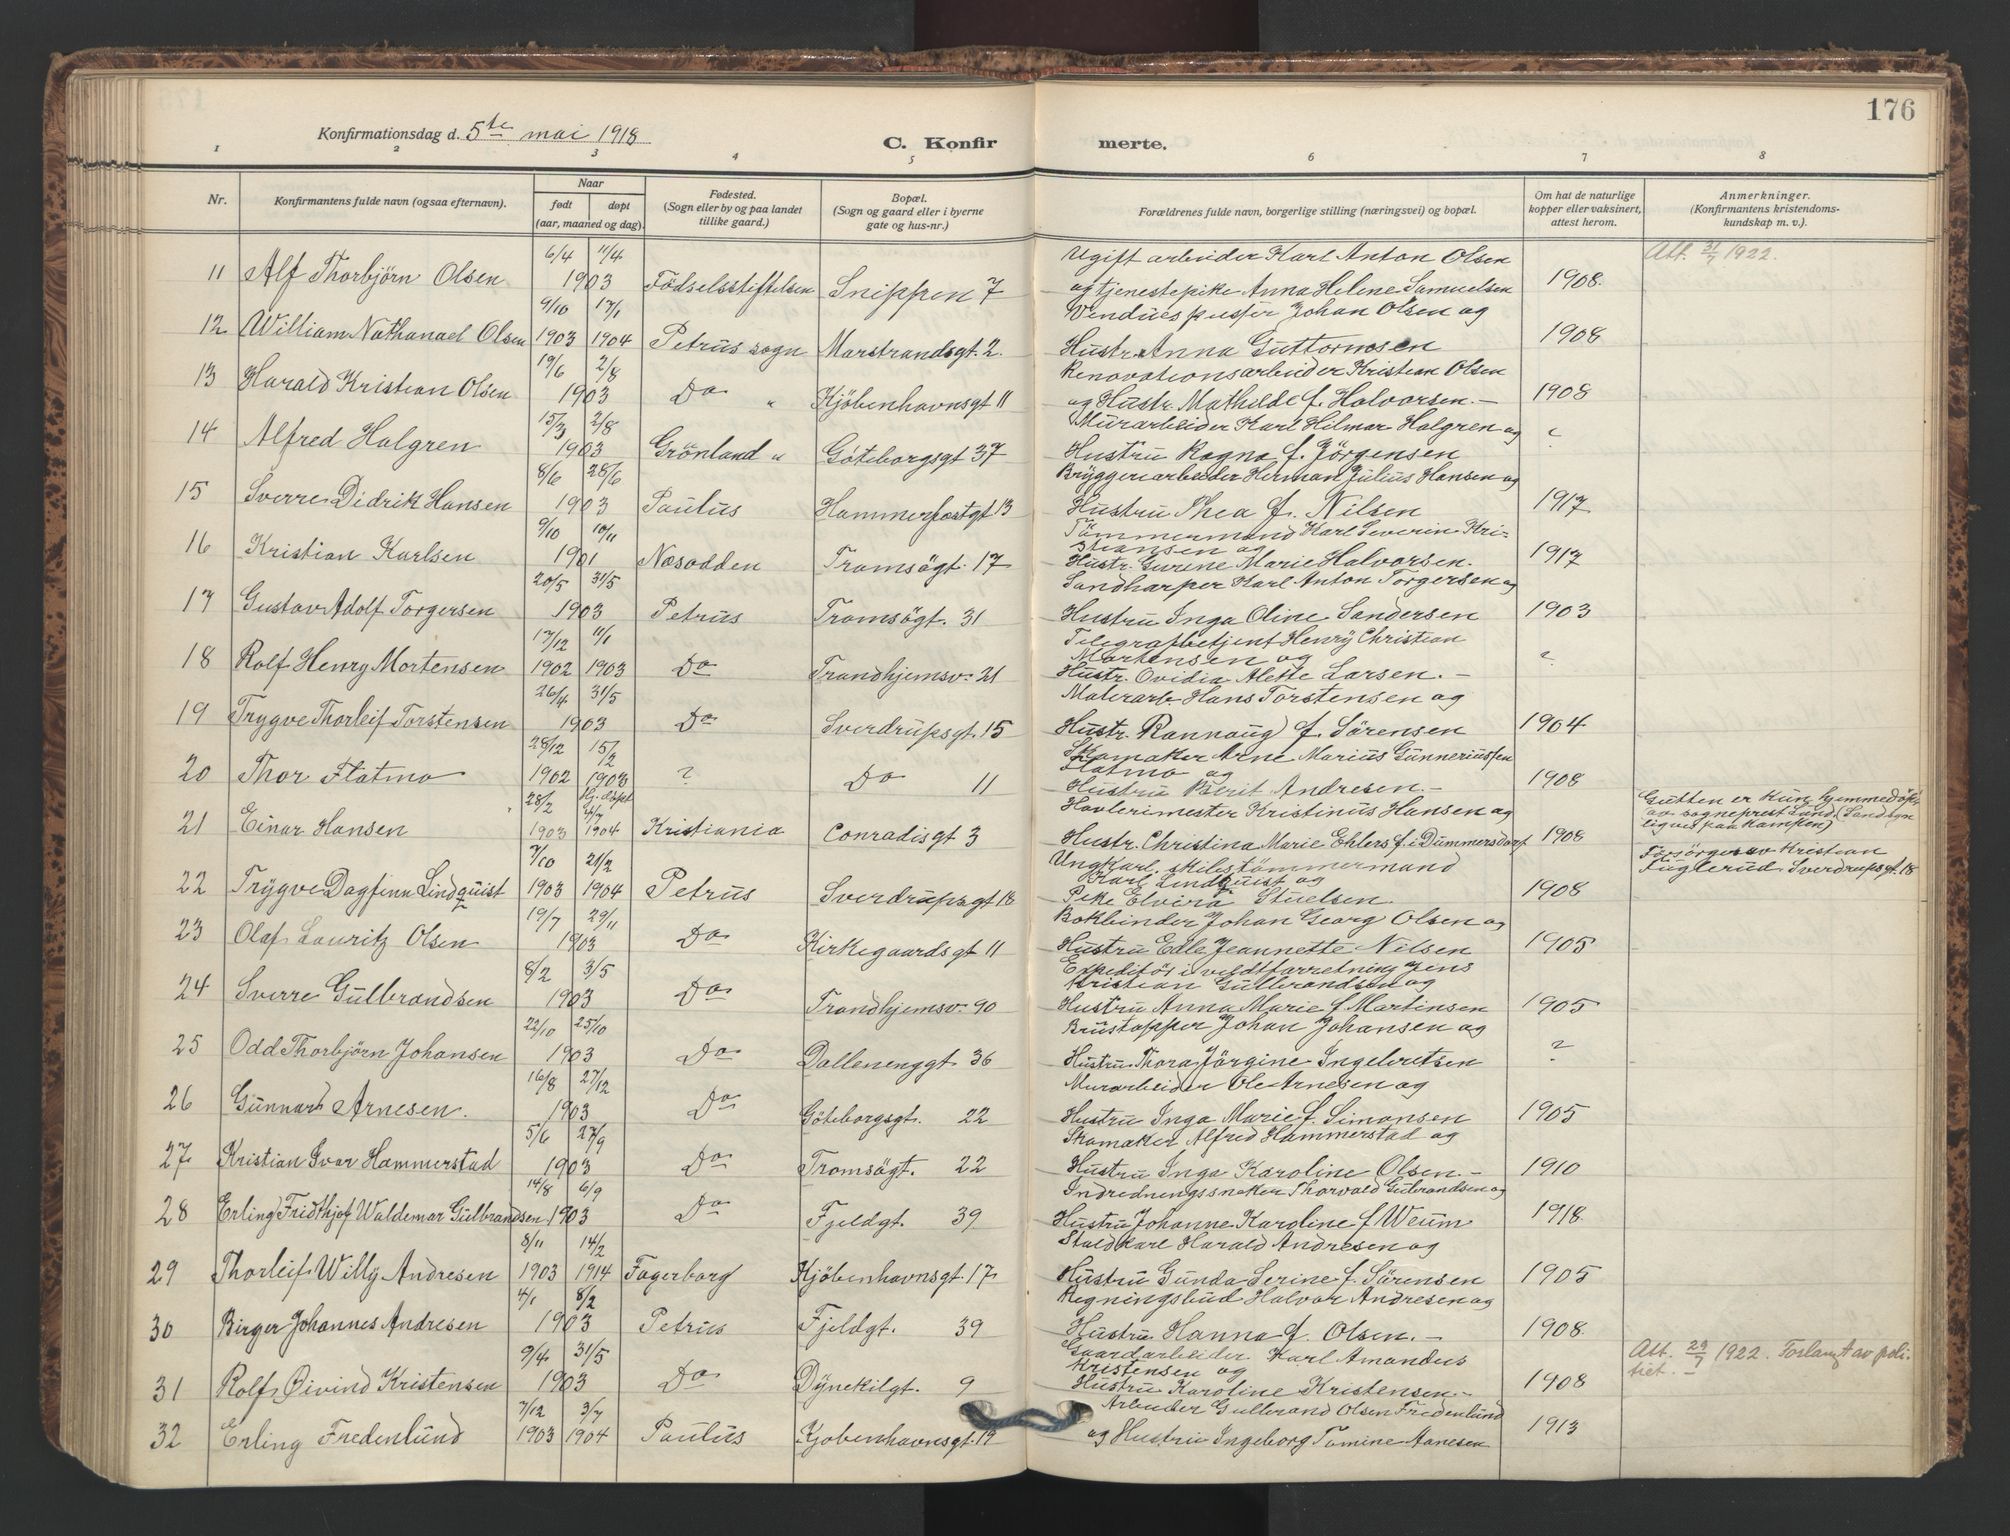 176
Konfirmationsdag d. 5te mai 1918
C. Konfirmerte.
1 2 3 4 5 6 7 8
Nr. Konfirmantens fulde navn (ogsaa efternavn). Naar født døpt (aar, maaned og dag). Fødested. (Sogn eller by og paa landet tillike gaard.) Bopæl. (Sogn og gaard eller i byerne gate og hus-nr.) Forældrenes fulde navn, borgerlige stilling (næringsvei) og bopæl. Om hat de naturlige kopper eller vaksinert, attest herom. Anmerkninger. (Konfirmantens kristendomskundskap m. v.).
6/4 11/4 Ugift arbeider Karl Anton Olsen Att. 31/7 1922.
11 Alf Thorbjörn Olsen 1903 Födselsstiftelsen Snippen 7 og tjenestepike Anna Helene Samuelsen 1908.
9/10 17/1 Johan Olsen og
12 William Nathanael Olsen 1903 1904 Petrus sogn Marstrandsgt. 2. Hustr. Anna Guttormsen 1908
19/6 2/8 Renovationsarbeider Kristian Olsen
13 Harald Kristian Olsen 1903 Do " Kjöbenhavnsgt 11 og Hustr. Mathilde f. Halvorsen.- 1908
15/3 2/8 Murarbeider Karl Hilmar Halgren og
14 Alfred Halgren 1903 Grönland " Göteborgsgt 37 Hustru Ragna f. Jörgensen ?
8/6 28/6 Bryggeriarbeider Herman Julius Hansen og
15 Sverre Didrik Hansen 1903 Paulus Hammerfestgt 13 Hustru Thea f. Nilsen 1917
9/10 10/11 Tömmermand Karl Severin Kri-
stiansen og
16 Kristian Karlsen 1901 Nesodden Tromsögt. 17 Hustr. Gurine Marie Halvorsen. 1917
20/5 31/5 Karl Anton Torgersen og
17 Gustav Adolf Torgersen 1903 Petrus Tromsögt. 31 Hustru Inga Oline Sandersen 1903
17/12 11/1 Telegrafbetjent Henry Christian
Mortensen og
18 Rolf Henry Mortensen 1902 1903 Do Trondhjemsv. 21 Hustr. Ovidia Alette Larsen.- ?
26/4 31/5 Malerarb. Hans Torstensen og
19 Trygve Thorleif Torstensen 1903 Do Sverdrupsgt. 15 Hustr. Rannaug f. Sörensen 1904
28/12 15/2 Skomaker Arne Marius Gunneriussen
Flatmo og
20 Thor Flatmo 1902 1903 ? Do 11 Hustru Berit Andresen.- 1908
28/2 Hj. döpt 4/7 Høvlerimester Kristinus Hansen og Gutten er kun hjemmedöpt
av sogneprest Lund. (Land
lignes paa Kampen)
21 Einar Hansen 1903 1904 Kristiania Conradisgt 3 Hustr. Christina Marie Ehlers f. i Dummersdorf 1908
7/10 21/2 Ungkarl, Forsörges av Kristian
Karl Lindquist og Fuglerud, Sverdrupsgt. 18
22 Trygve Dagfinn Lindquist 1903 1904 Petrus Sverdrupsgt 18 Pike Elvira Stuelsen 1908
19/7 29/11 Bokbinder Johan Georg Olsen og
23 Olaf Lauritz Olsen 1903 Do Kirkegaardsgt 11 Hustru Edle Jeannette Nilsen 1905
8/2 3/5 Expeditör i vildtforretning Jens
Kristian Gulbrandsen og
24 Sverre Gulbrandsen 1903 Do Trondhjemsv. 90 Hustru Anna Marie f. Martinsen 1905
22/10 25/10 Brustapper Johan Johansen og
25 Odd Thorbjörn Johansen 1903 Do Dælenenggt 36 Hustru Thora Jörgine Ingebretsen ?
16/8 27/12 Murarbeider Ole Arnesen og
26 Gunnar Arnesen. 1903 Do Göteborgsgt. 22 Hustru Inga Marie f. Simonsen 1905
5/6 27/9 Skomaker Alfred Hammerstad og
27 Kristian Ivar Hammerstad 1903 Do Tromsögt. 22 Hustru Inga Karoline Olsen.- 1910
14/8 6/9 Indredningssneker Thorvald Gulbrandsen og
28 Erling Fridthjof Waldemar Gulbrandsen 1903 Do Fjeldgt. 39 Hustru Johanne Karoline f. Weum 1918.
8/11 14/2 Staldkarl Harald Andresen og
29 Thorleif Willy Andresen 1903 1914 Fagerborg Kjöbenhavnsgt. 17 Hustru Gunda Serine f. Sörensen 1905
4/1 8/2 Regningsbud Halvor Andresen og
30 Birger Johannes Andresen 1903 Petrus Fjeldgt. 39 Hustru Hanna f. Olsen.- 1908.
9/4 31/5 Gaardarbeider Karl Amandus Att. 29/7 1922. Forlangt av poli-
Kristensen og tiet.-
31 Rolf Øivind Kristensen 1903 Do Dynekilgt. 9 Hustru Karoline Kristensen.- 1908
7/12 3/7 Arbeider Gulbrand Olsen Fredenlund
32 Erling Fredenlund 1903 1904 Paulus Kjobenhavnsgt. 19 og Hustru Ingeborg Tomine Aanesen 1913